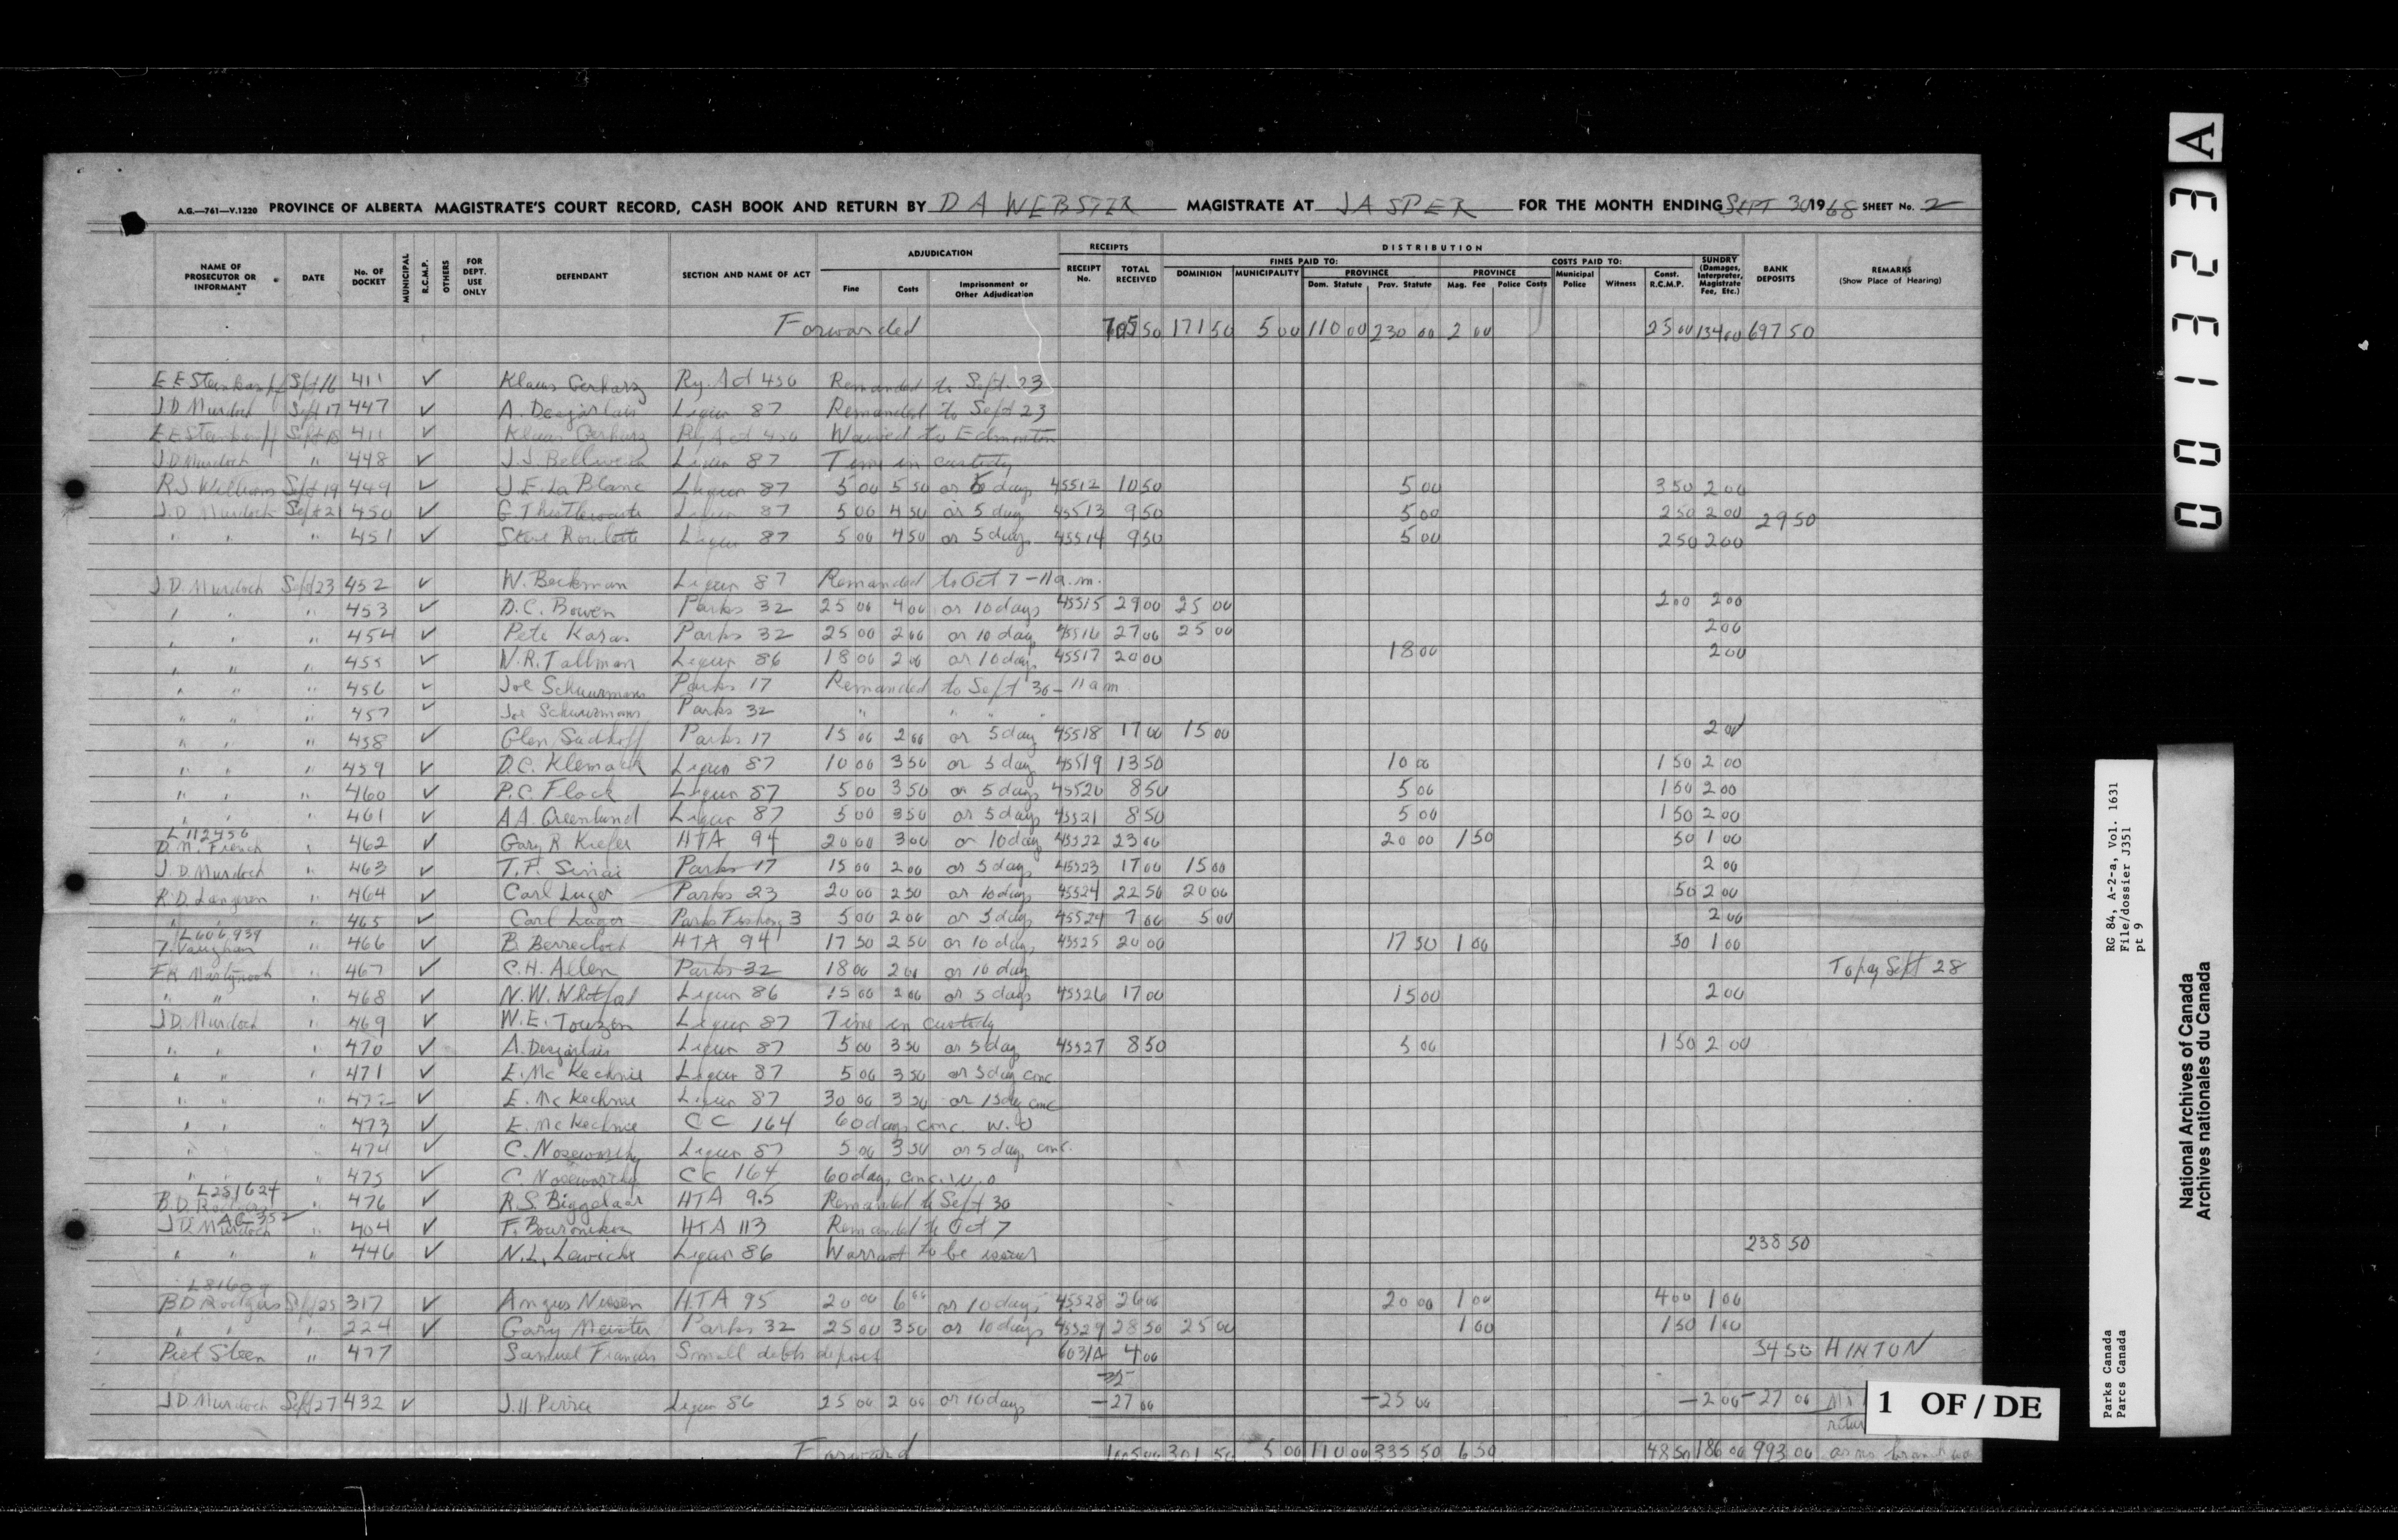 A.G.—761—V.1220 PROVINCE OF ALBERTA MAGISTRATE'S COURT RECORD, CASH BOOK AND RETURN BY D A WEBSTER MAGISTRATE AT JASPER FOR THE MONTH ENDING SEPT 30 1968 SHEET No. 2
NAME OF PROSECUTOR OR INFORMANT DATE No. OF DOCKET MUNICIPAL R.C.M.P. OTHERS FOR DEPT. USE ONLY DEFENDANT SECTION AND NAME OF ACT ADJUDICATION RECEIPTS DISTRIBUTION
Fine Costs Imprisonment or Other Adjudication RECEIPT No. TOTAL RECEIVED FINES PAID TO: DOMINION MUNICIPALITY PROVINCE Dom. Statute Prov. Statute COSTS PAID TO: PROVINCE Mag. Fee Police Costs Municipal Police Witness Const. R.C.M.P. SUNDRY (Damages, Interpreter, Magistrate Fee, Etc.) BANK DEPOSITS REMARKS (Show Place of Hearing)
Forwarded 705 50 171 50 5 00 110 00 230 00 2 00 25 00 134 00 697 50
Sept 16 411 ✓ Klaus Gerharz Ry. Act 450 Remanded to Sept. 23
J D Murdoch Sept 17 447 ✓ A. Desjarlais Liquor 87 Remanded to Sept 23
411 ✓ Klaus Gerharz Ry Act 450 Waived to Edmonton
J D Murdoch " 448 ✓ J.J. Liquor 87 Time in custody
R J. Williams Sept 19 449 ✓ J. E. La Blanc Liquor 87 5 00 5 50 or days 45512 10 50 5 00 3 50 2 00
J. D Murdoch Sept 21 450 ✓ G. Liquor 87 5 00 4 50 or 5 days 45513 9 50 5 00 2 50 2 00 29 50
" " 451 ✓ Steve Roulette Liquor 87 5 00 4 50 or 5 days 45514 9 50 5 00 2 50 2 00
J. D. Murdoch Sept 23 452 ✓ W. Beckman Liquor 87 Remanded to Oct 7 - 11 a.m.
" " " 453 ✓ D. C. Bowen Parks 32 25 00 4 00 or 10 days 45515 29 00 25 00 2 00 2 00
" " " 454 ✓ Pete Karas Parks 32 25 00 2 00 or 10 days 45516 27 00 25 00 2 00
" " " 455 ✓ N. R. Tallman Liquor 86 18 00 2 00 or 10 days 45517 20 00 18 00 2 00
" " " 456 ✓ Joe Schuurmans Parks 17 Remanded to Sept 30 - 11 am
" " " 457 ✓ Joe Schuurmans Parks 32 " " " "
" " " 458 ✓ Glen Parks 17 15 00 2 00 or 5 days 45518 17 00 15 00 2 00
" " " 459 ✓ D. C. Klemack Liquor 87 10 00 3 50 or 5 days 45519 13 50 10 00 1 50 2 00
" " " 460 ✓ P. C. Flack Liquor 87 5 00 3 50 or 5 days 45520 8 50 5 00 1 50 2 00
" " " 461 ✓ A A. Greenlund Liquor 87 5 00 3 50 or 5 days 45521 8 50 5 00 1 50 2 00
L 112456
D. N. French " 462 ✓ Gary R. Kiefer HTA 94 20 00 3 00 or 10 days 45522 23 00 20 00 1 50 50 1 00
J. D. Murdoch " 463 ✓ T. F. Sinai Parks 17 15 00 2 00 or 5 days 45523 17 00 15 00 2 00
R. D. Langeren " 464 ✓ Carl Luger Parks 23 20 00 2 50 or 10 days 45524 22 50 20 00 50 2 00
" " " 465 ✓ Carl Luger Parks Fishing 3 5 00 2 00 or 5 days 45524 7 00 5 00 2 00
L 606939
T. Vaughan " 466 ✓ B. HTA 94 17 50 2 50 or 10 days 45525 20 00 17 50 1 00 50 1 00
467 ✓ C. H. Allen Parks 32 18 00 2 00 or 10 days To pay Sept 28
" " " 468 ✓ N. W. Liquor 86 15 00 2 00 or 5 days 45526 17 00 15 00 2 00
J D. Murdoch " 469 ✓ W. E. Touzen Liquor 87 Time in custody
" " " 470 ✓ A. Desjarlais Liquor 87 5 00 3 50 or 5 days 45527 8 50 5 00 1 50 2 00
" " " 471 ✓ E. McKechnie Liquor 87 5 00 3 50 or 5 days conc
" " " 472 ✓ E. McKechnie Liquor 87 30 00 3 50 or 15 days conc
" " " 473 ✓ E. McKechnie CC 164 60 days conc. W.O
" " " 474 ✓ C. Noseworthy Liquor 87 5 00 3 50 or 5 days conc.
" " " 475 ✓ C. Noseworthy CC 164 60 days conc. W.O
L 251624
B. D. Rodgers " 476 ✓ R. S. Biggelaar HTA 95 Remanded to Sept 30
J D. Murdoch " 404 ✓ F. HTA 113 Remanded to Oct 7
" " " 446 ✓ N. L. Liquor 86 Warrant to be issued 238 50
B D Rodgers Sept 25 317 ✓ Angus HTA 95 20 00 6 00 or 10 days 45528 26 00 20 00 1 00 4 00 1 00
" " " 224 ✓ Gary Meister Parks 32 25 00 3 50 or 10 days 45529 28 50 25 00 1 00 1 50 1 00
Piet Steen " 477 Samuel Francis Small debts deposit 6031A 4 00 34 50 HINTON
J D. Murdoch Sept 27 432 ✓ J. H. Peirce Liquor 86 25 00 2 00 or 10 days -27 00 -25 00 -2 00 -27 00
Forward 1005 00 301 50 5 00 110 00 335 50 6 50 48 50 186 00 993 00
1 OF / DE
001323 A
RG 84, A-2-a, Vol. 1631
File/dossier J351
pt 9
Parks Canada
Parcs Canada
National Archives of Canada
Archives nationales du Canada